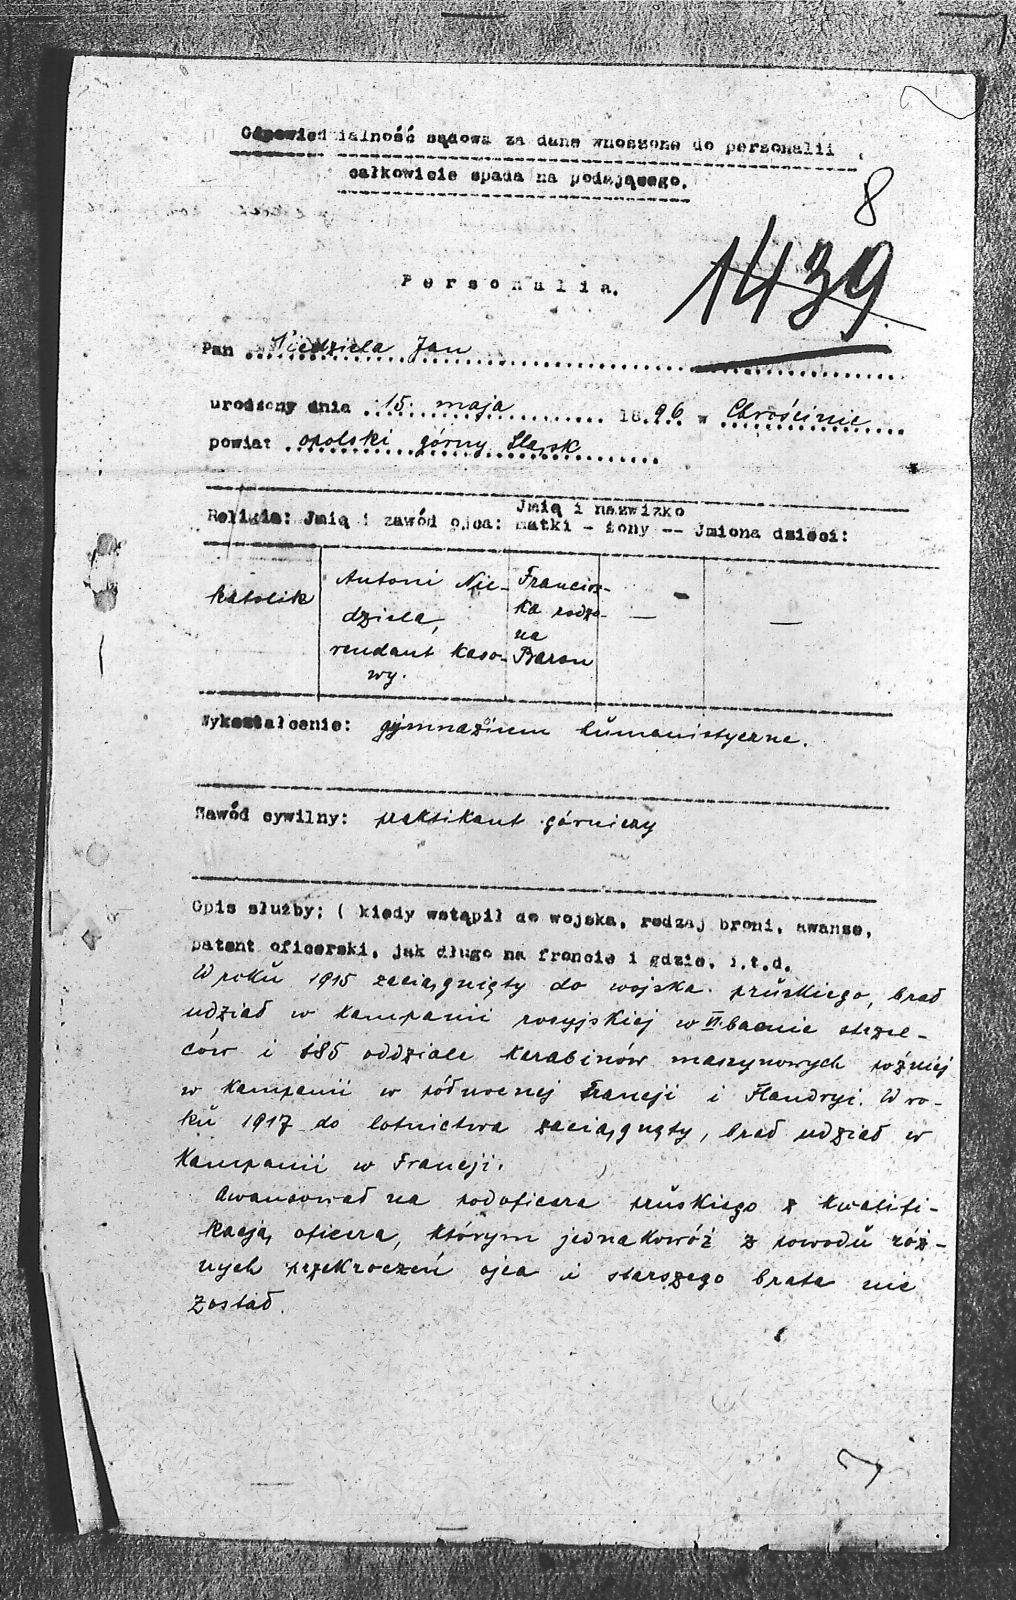 Odpowiedzialność sądowa za dane wnoszone do personalii
całkowicie spada na podającego.
8
1439
Personalia.
Pan Niedziela Jan
urodzony dnia 15. maja 1896 w Chróścinie
powiat opolski górny Śląsk
Jmię i nazwizko
Religia: Jmię i zawód ojca: matki - żony -- Jmiona dzieci:
katolik
Antoni Nie-
dziela,
rendant kaso-
wy.
Francisz-
ka rodzo-
na
Baron
—
—
Wykształcenie: gymnazium humanistyczne.
Zawód cywilny: praktikant górniczy
Opis służby: ( kiedy wstąpił do wojska, rodzaj broni, awanse,
patent oficerski, jak długo na froncie i gdzie, i.t.d.
W roku 1915 zaciągnięty do wojska pruskiego, brał
udział w kampani rosyjskiej w VI. baonie strzel-
ców i 185 oddziale karabinów maszynowych poźniej
w kampanii w północnej Francji i Flandryi. W ro-
ku 1917 do lotnictwa zaciągnęty, brał udział w
kampanii w Francji.
Awansował na podoficera pruskiego z kwalifi-
kacją oficera, którym jednakowóż z powodu róż-
nych przekroczeń ojca i starszego brata nie
został.